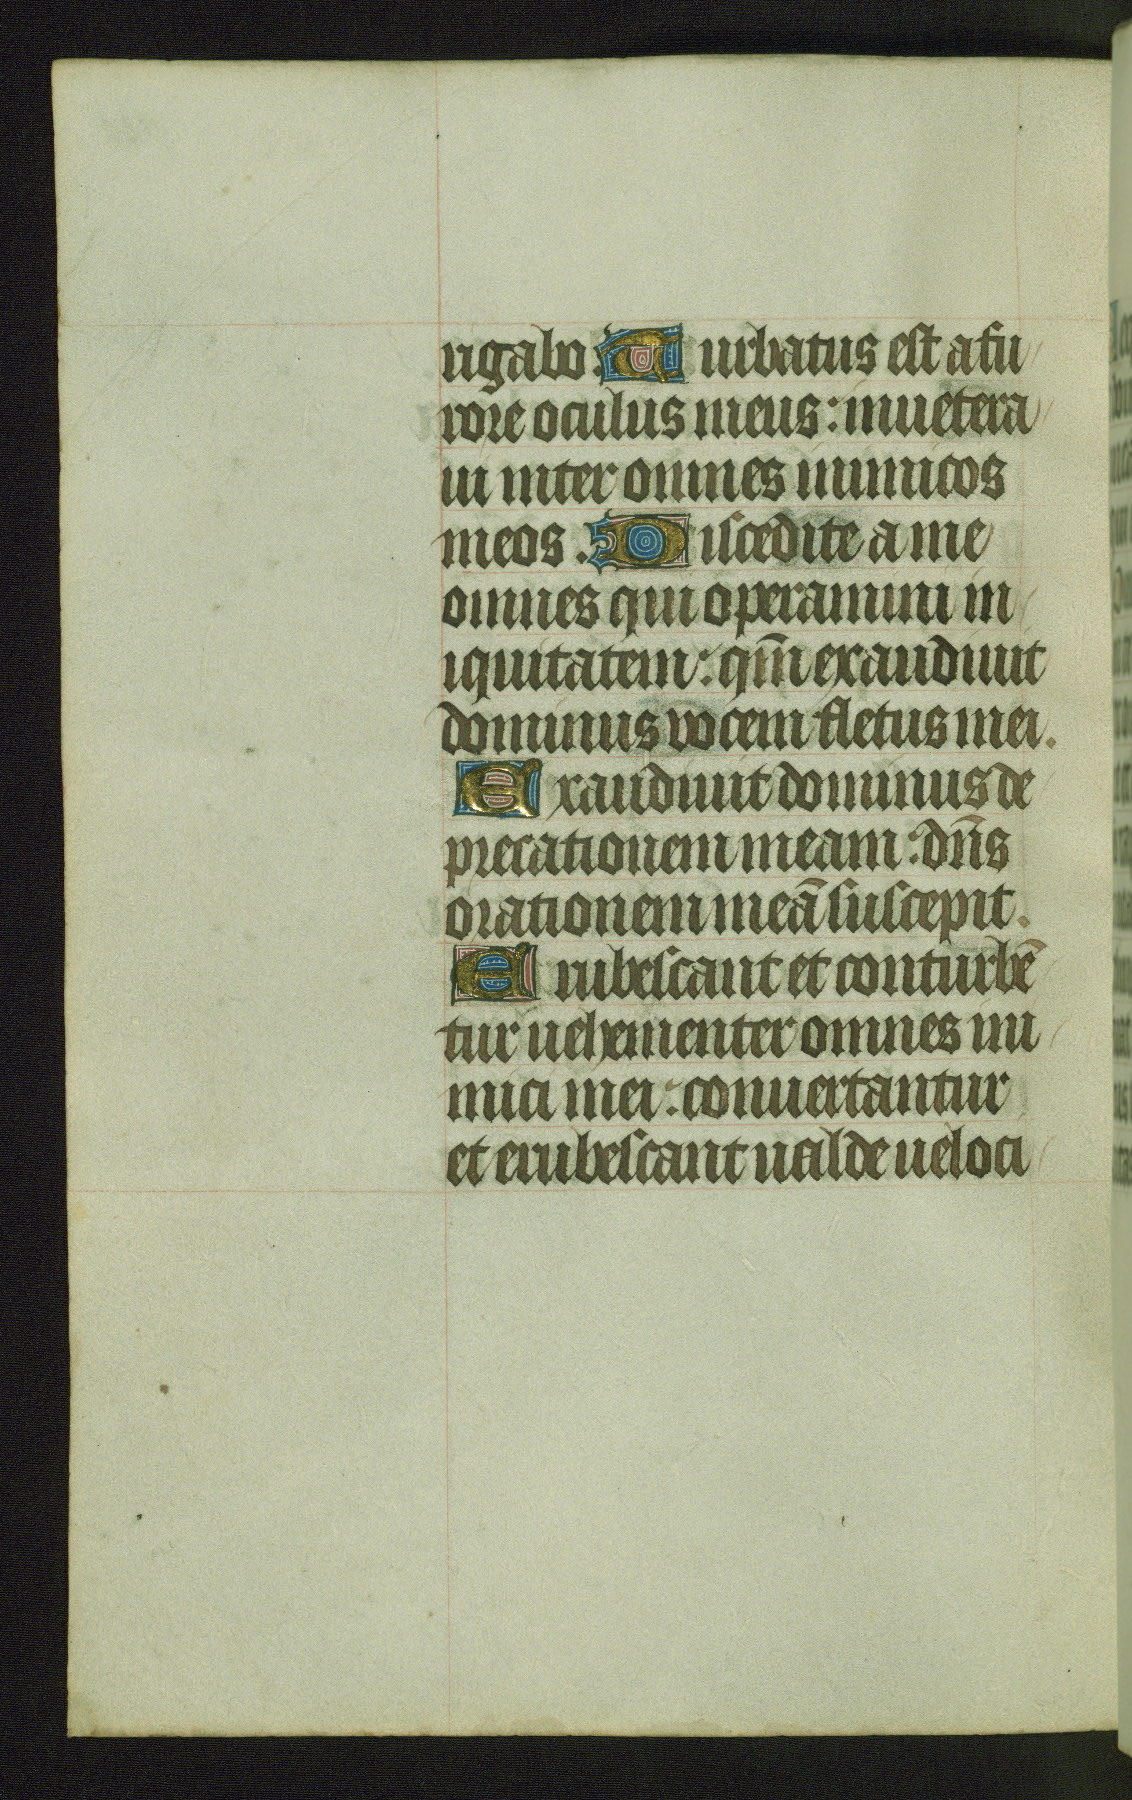 rigabo. Turbatus est a fu
rore oculus meus: inuetera
ui inter omnes inimicos
meos. Discedite a me
omnes qui operamini in
iquitatem: qm̄ exaudiuit
dominus vocem fletus mei.
Exaudiuit dominus de
precationem meam: dn̄s
orationem meā suscepit.
Erubescant et conturbē
tur uehementer omnes ini
mici mei: conuertantur
et erubescant ualde ueloci